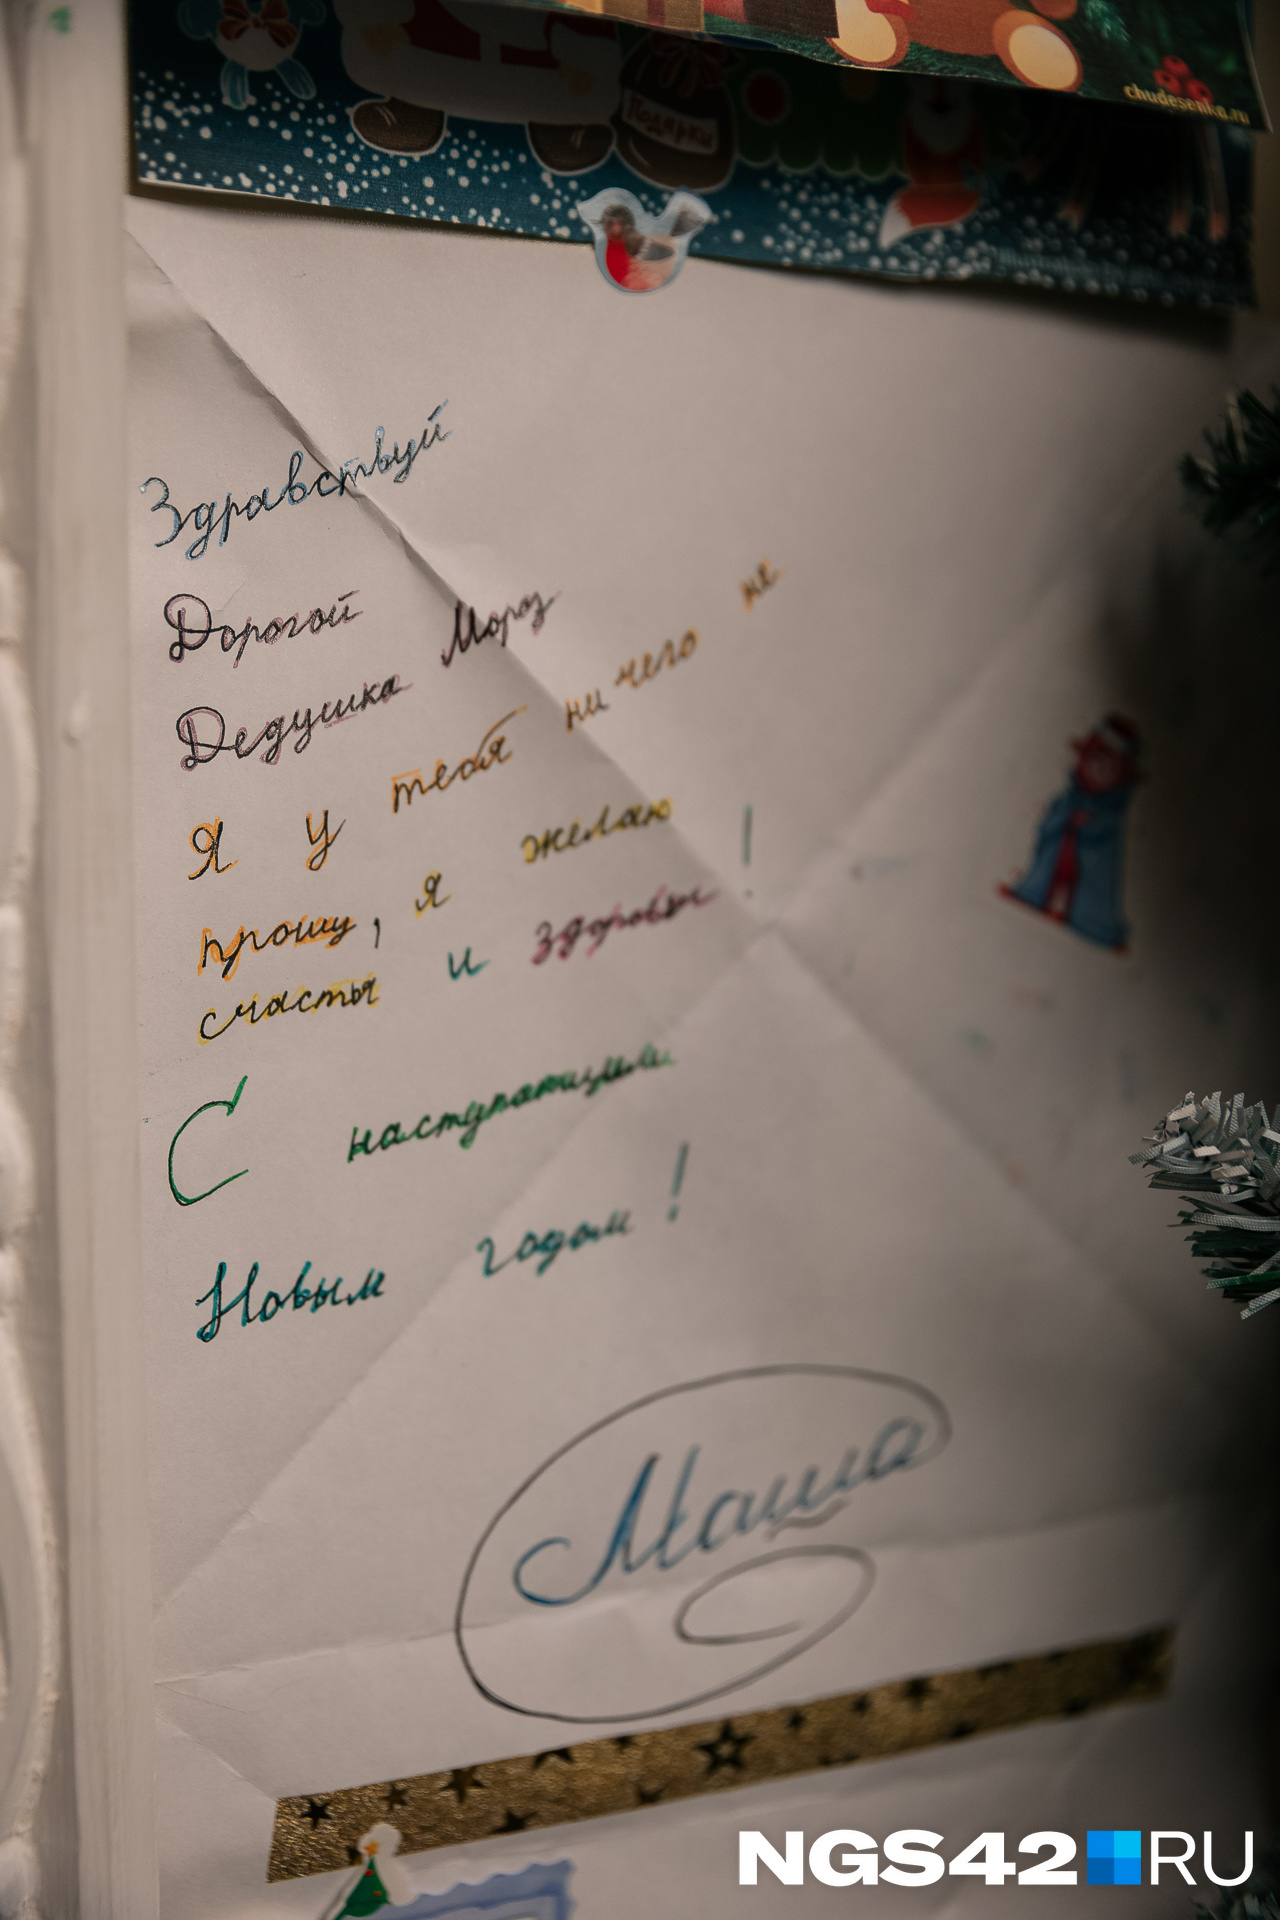 chudesenka.ru
Подарки
Здравствуй
Дорогой
Дедушка Мороз
Я у тебя ни чего не
прошу, я желаю
счастья и здоровья!
С наступающим
Новым годом!
Маша
NGS42 RU